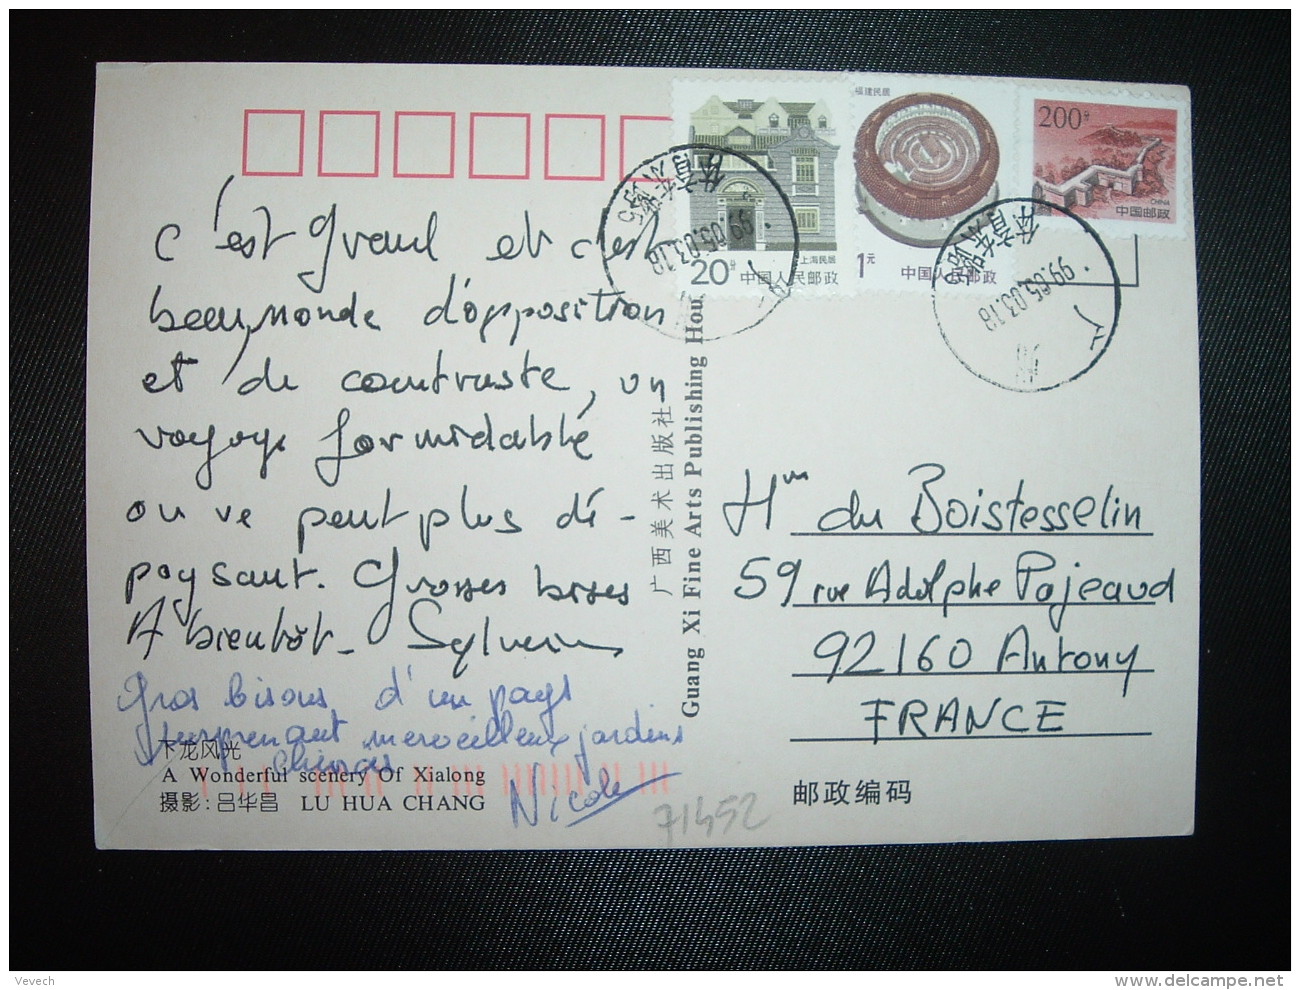 c'est grand et c'est
beau, monde d'opposition
et de contraste, un
voyage formidable
on ne peut plus dé-
paysant. Grosses bises
A bientôt - Sylvain
Gros bisous d'un pays
surprenant merveilleux jardins
chinois
Nicole
下龙风光
A Wonderful scenery Of Xialong
摄影:吕华昌 LU HUA CHANG
71452
广西美术出版社
Guang Xi Fine Arts Publishing Hou
上海民居
20分 中国人民邮政
福建民居
1元 中国人民邮政
200分
CHINA
中国邮政
99.05.03.18
体育东路
99.05.03.18
体育东路
Hm du Boistesselin
59 rue Adolphe Pajeaud
92160 Antony
FRANCE
邮政编码
Vevech
http://www.delcampe.net